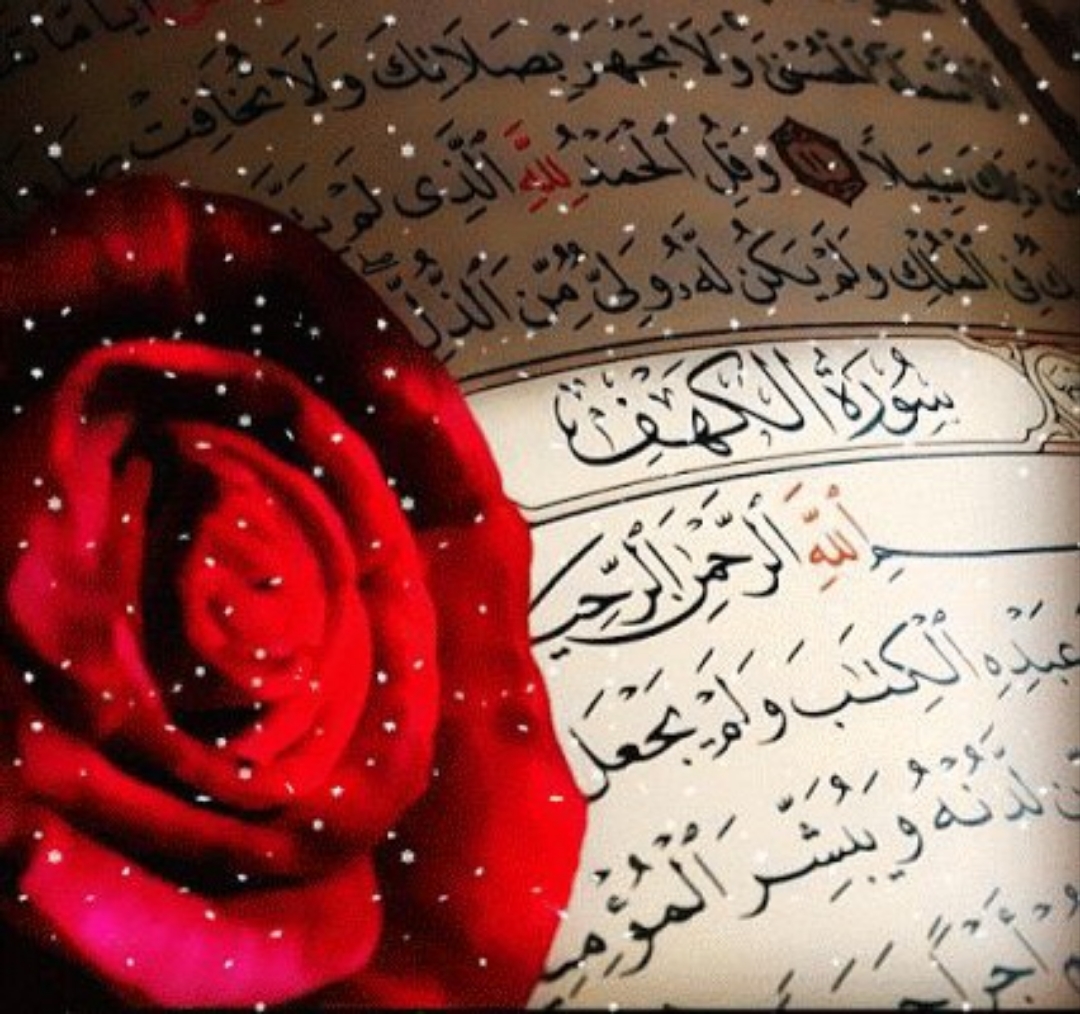 أَيًّا مَّا
ٱلْأَسْمَآءُ ٱلْحُسْنَىٰ وَلَا تَجْهَرْ بِصَلَاتِكَ وَلَا تُخَافِتْ
ذَٰلِكَ سَبِيلًا ١١٠ وَقُلِ ٱلْحَمْدُ لِلَّهِ ٱلَّذِى لَمْ
فِى ٱلْمُلْكِ وَلَمْ يَكُن لَّهُۥ وَلِىٌّ مِّنَ ٱلذُّلِّ
سُورَةُ الْكَهْفِ
بِسْمِ ٱللَّهِ ٱلرَّحْمَٰنِ ٱلرَّحِيمِ
عَبْدِهِ ٱلْكِتَٰبَ وَلَمْ يَجْعَل
مِّن لَّدُنْهُ وَيُبَشِّرَ ٱلْمُؤْمِ
أَجْرًا